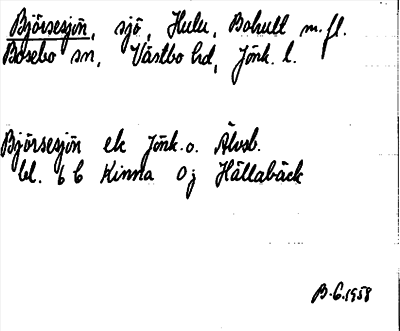 Björsesjön, sjö, Hulu, Bohult m.fl.
Bosebo sn, Västbo hd, Jönk. l.
Björsesjön ek Jönk. o. Älvsb.
bl. 6 b Kinna Oj Hällabäck
B.G. 1958